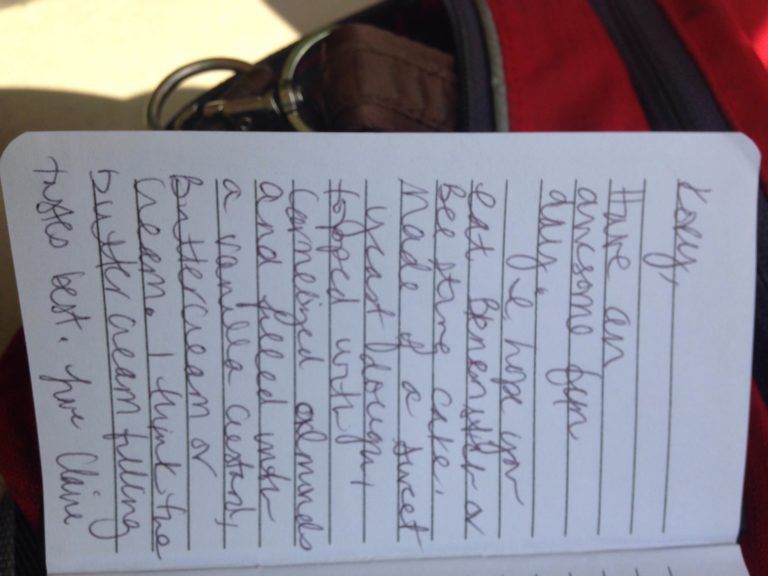 Kory,
Have an
awesome fun
day. I hope you
eat Benenstich or
Bee sting cake,
Made of a sweet
yeast dough,
topped with
Carmelized almonds
and filled with
a vanilla custard,
Buttercream or
Cream. I think the
buttercream filling
tastes best. love Claire